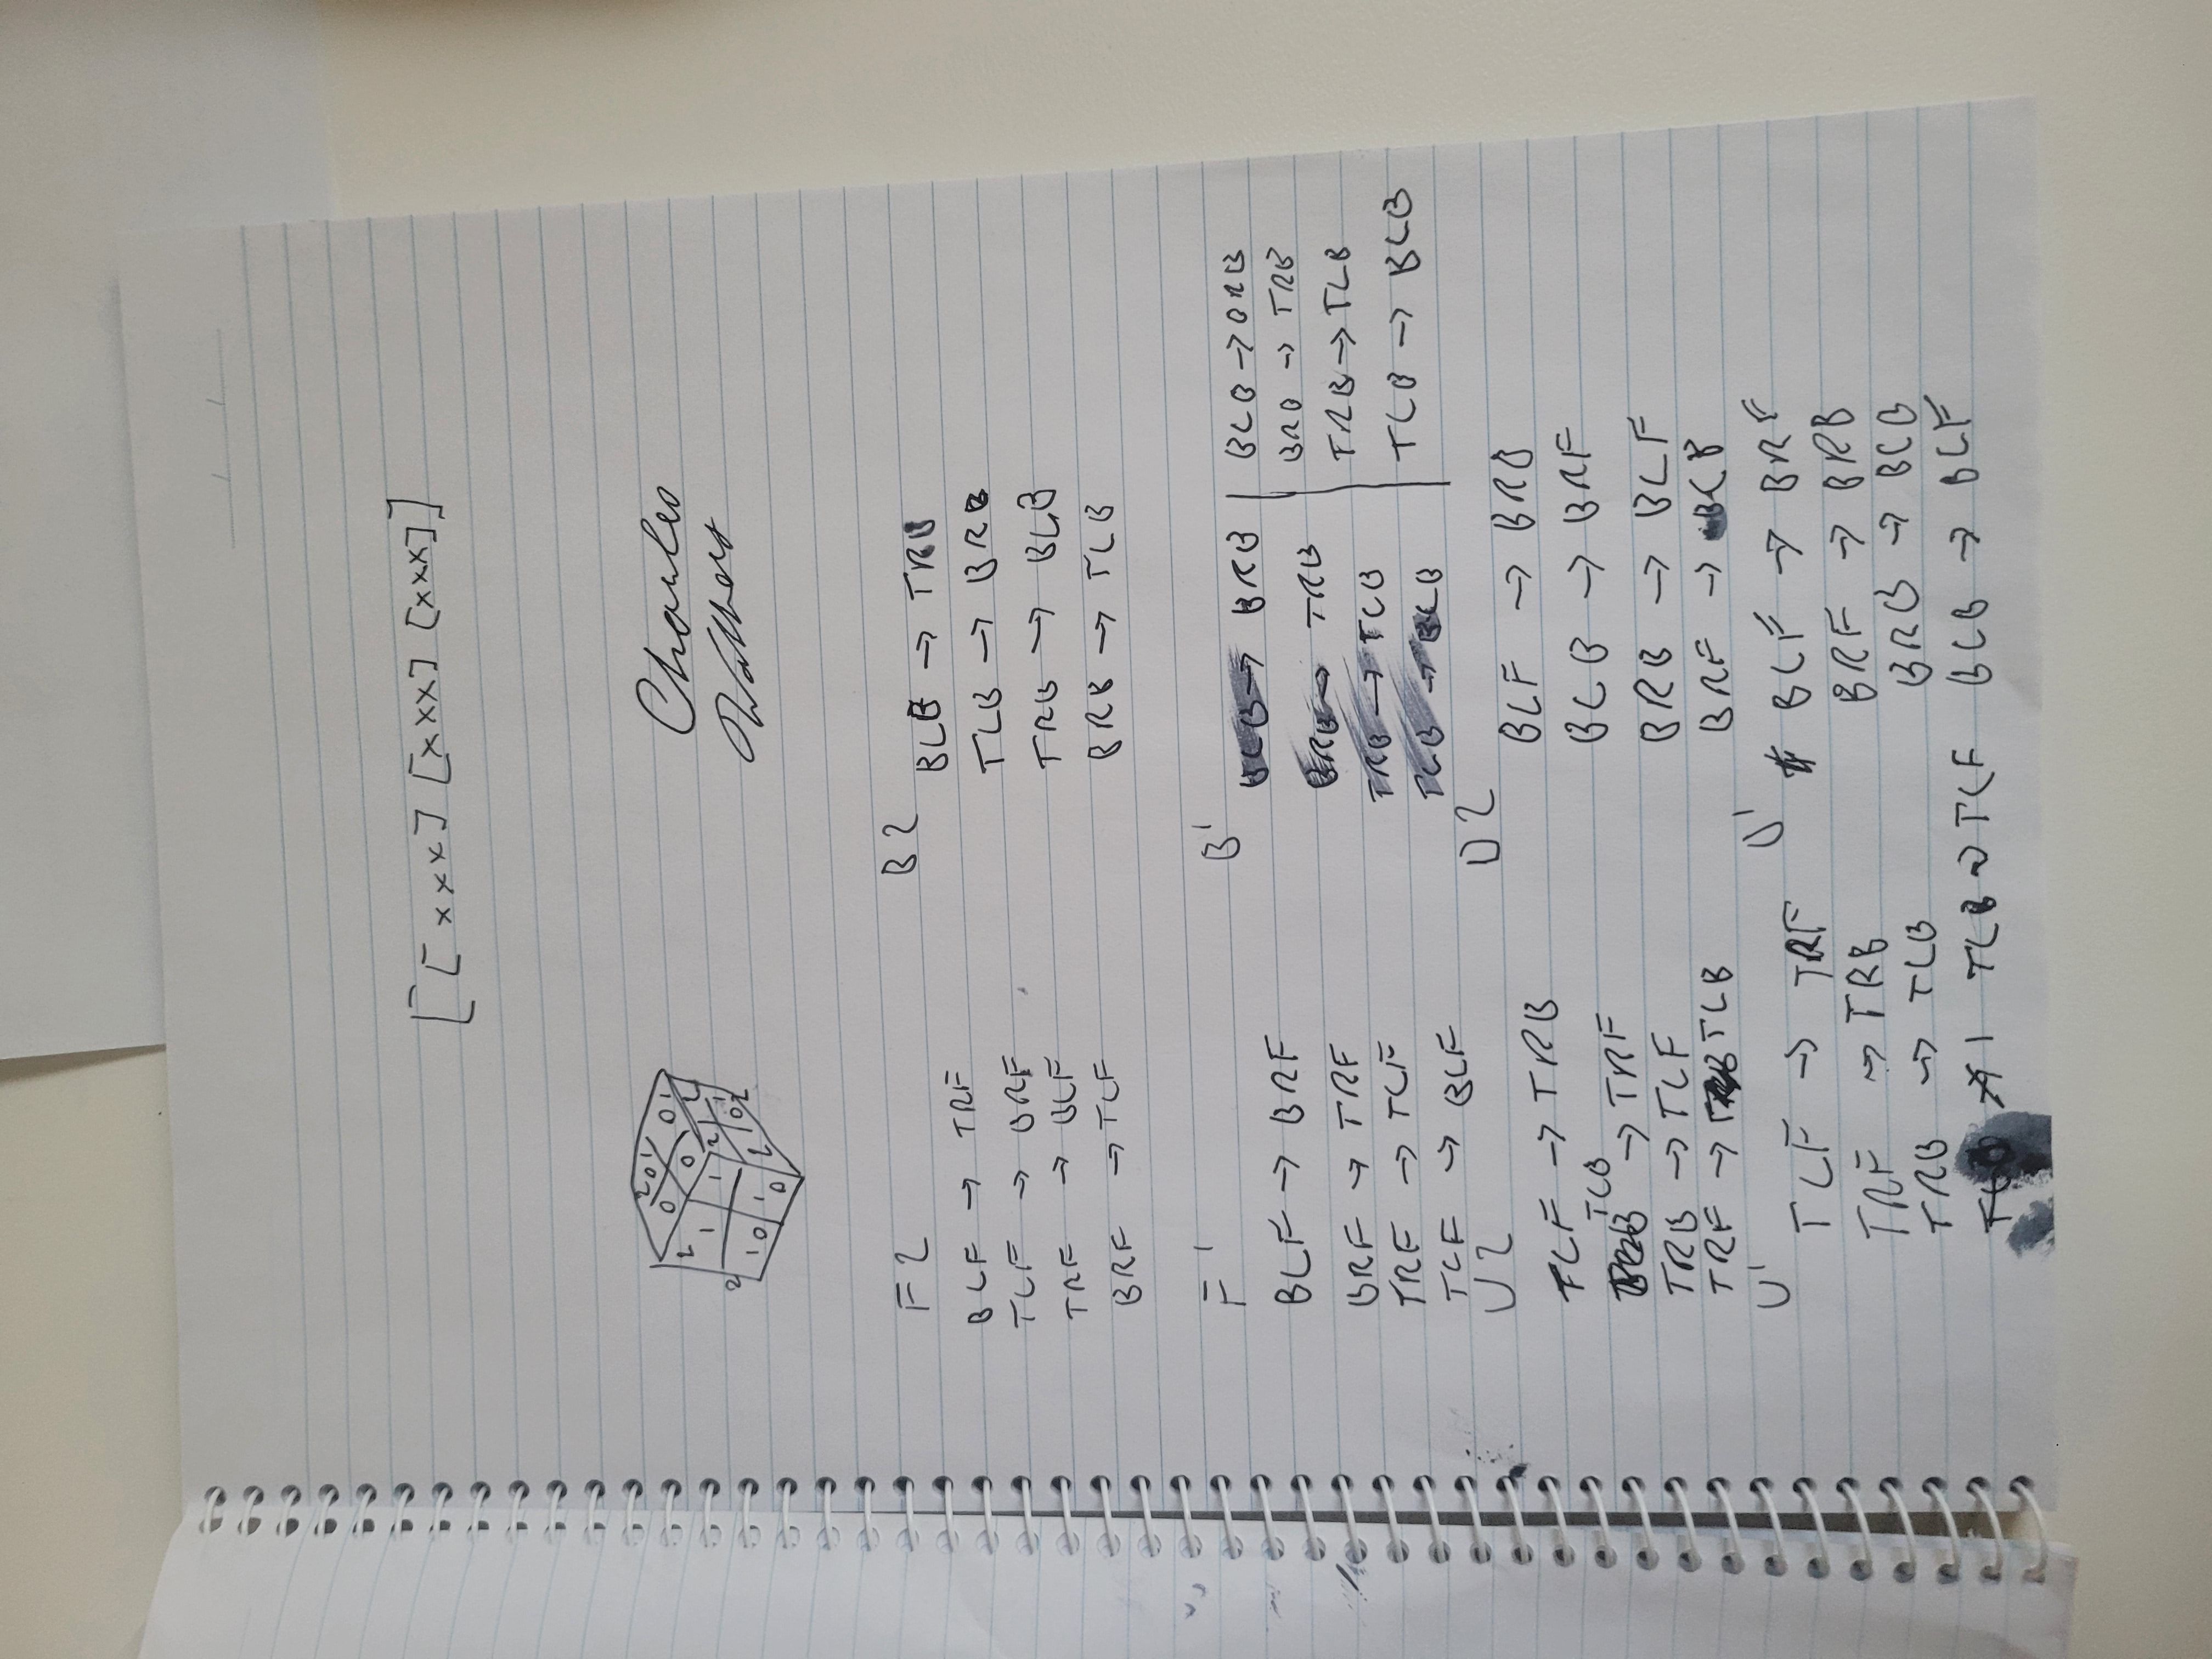 [[xxx] [xxx] [xxx]]
2 0 1
0 0 1
2 0 2
1 1 2 1
2 0 2
1 0 2
0
Charles
F2
BLF → TRF
TLF → BRF
TRF → BLF
BRF → TLF
B2
BLB → TRB
TLB → BRB
TRB → BLB
BRB → TLB
F'
BLF → BRF
BRF → TRF
TRF → TLF
TLF → BLF
B'
BLB → BRB
BRB → TRB
TRB → TLB
TLB → BLB
BLB → BRB
BRB → TRB
TRB → TLB
TLB → BLB
U2
TLF → TRB
TLB
→ TRF
TRB → TLF
TRF → TLB
D2
BLF → BRB
BLB → BRF
BRB → BLF
BRF → BLB
U'
TLF → TRF
TRF → TRB
TRB → TLB
TLB → TLF
D'
BLF → BRF
BRF → BRB
BRB → BLB
BLB → BLF